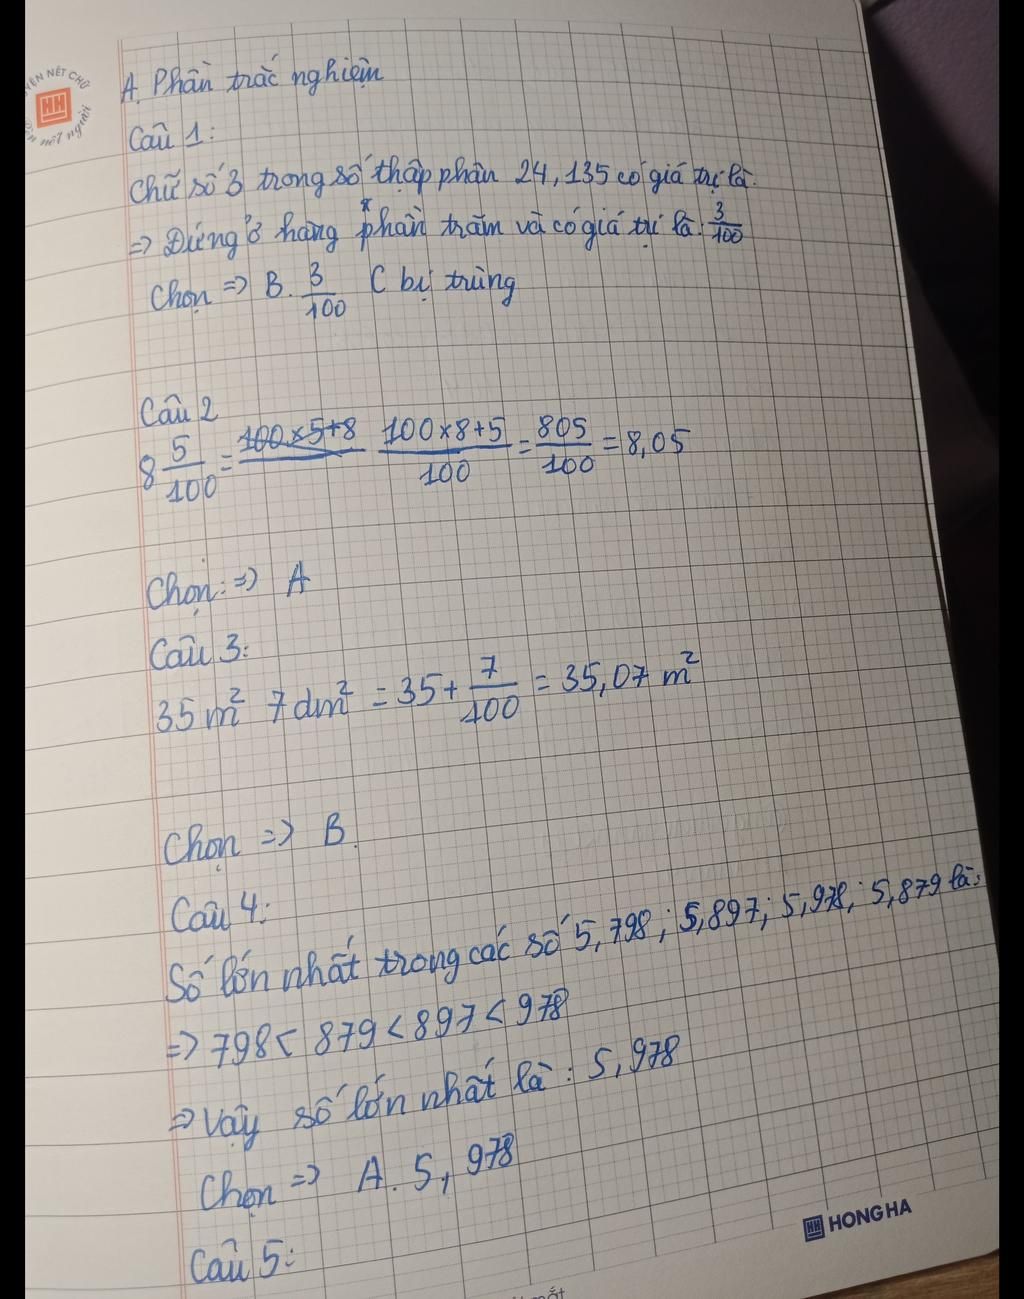 A. Phần trắc nghiệm
Câu 1:
Chữ số 3 trong số thập phân 24,135 có giá trị là:
=> Đứng ở hàng phần trăm và có giá trị là: 3/100
Chọn => B. 3/100 C bị trùng
Câu 2
8 5/100 = 100×5+8 (100×8+5)/100 = 805/100 = 8,05
Chọn: => A
Câu 3:
35 m² 7 dm² = 35 + 7/100 = 35,07 m²
Chọn => B.
Câu 4:
Số lớn nhất trong các số 5,798; 5,897; 5,978; 5,879 là:
=> 798 < 879 < 897 < 978
=> Vậy số lớn nhất là: 5,978
Chọn => A. 5,978
Câu 5:
HH HONG HA